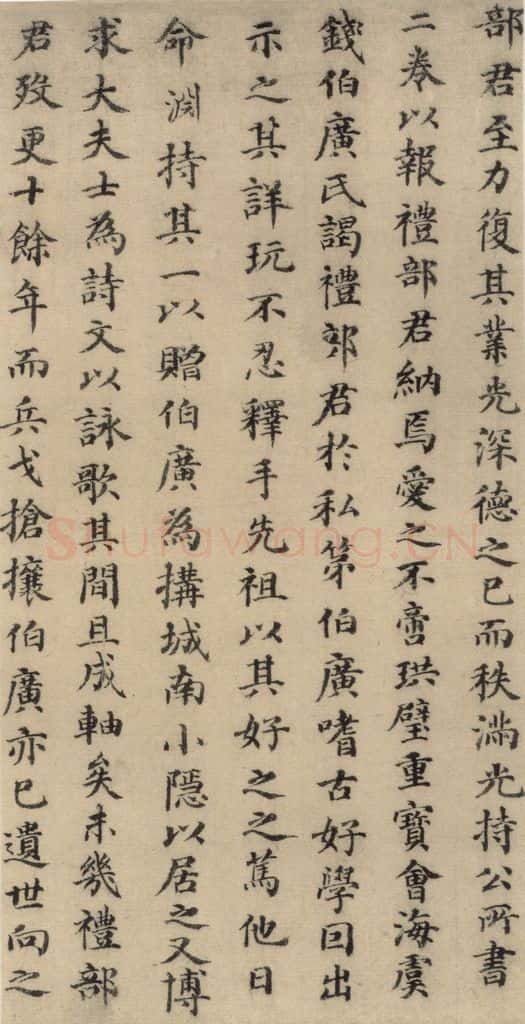 部君至力復其業光深德之已而秩滿光持公所書
二卷以報禮部君納焉愛之不啻珙璧重寶會海虞
錢伯廣氏謁禮部君於私第伯廣嗜古好學因出
示之其詳玩不忍釋手先祖以其好之之篤他日
命淵持其一以贈伯廣為搆城南小隱以居之又博
求大夫士為詩文以詠歌其間且成軸矣未幾禮部
君歿更十餘年而兵戈搶攘伯廣亦已遺世向之
Shufawang.CN